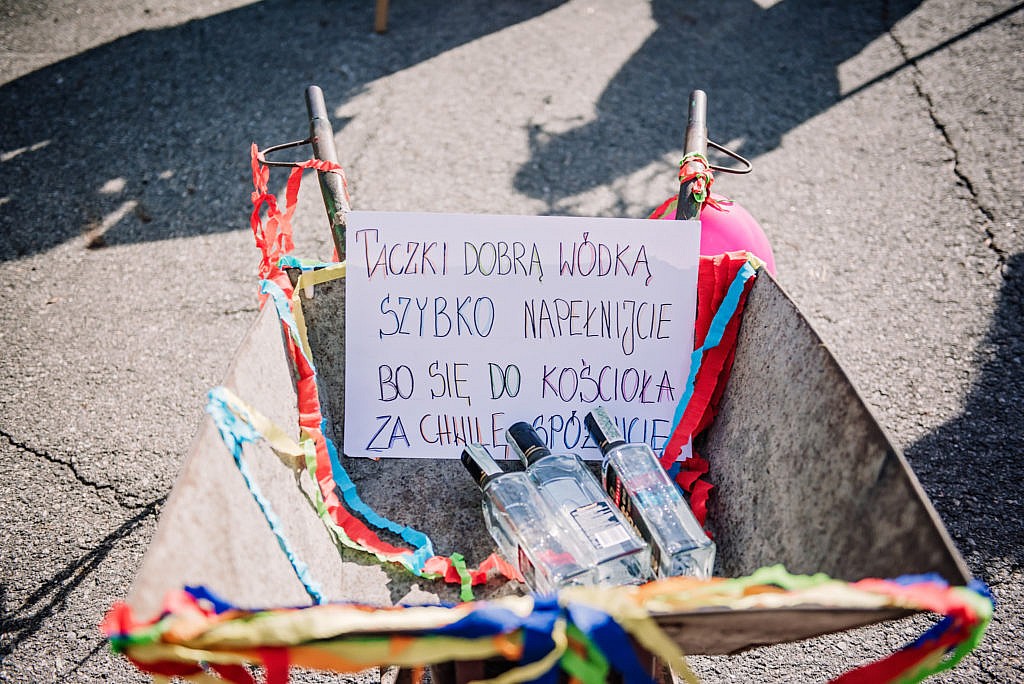 TACZKI DOBRĄ WÓDKĄ
SZYBKO NAPEŁNIJCIE
BO SIĘ DO KOŚCIOŁA
ZA CHWILĘ SPÓŹNICIE